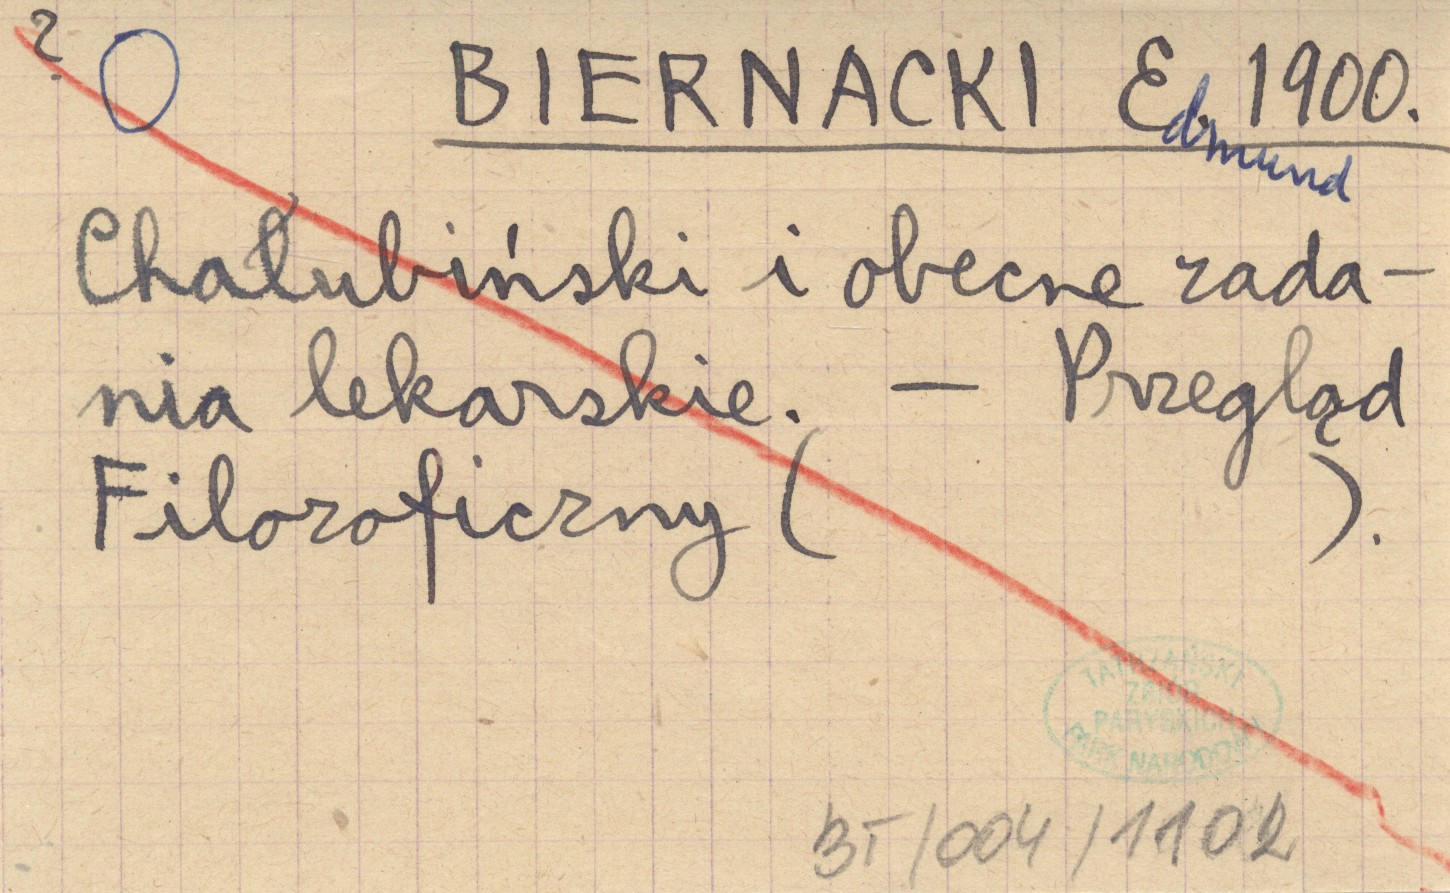 ?
BIERNACKI E. 1900.
dmund
Chałubiński i obecne zada-
nia lekarskie. — Przegląd
Filozoficzny ( ).
TATRZAŃSKI
PARYSKICH
PARK NARODOWY
BT/004/1102